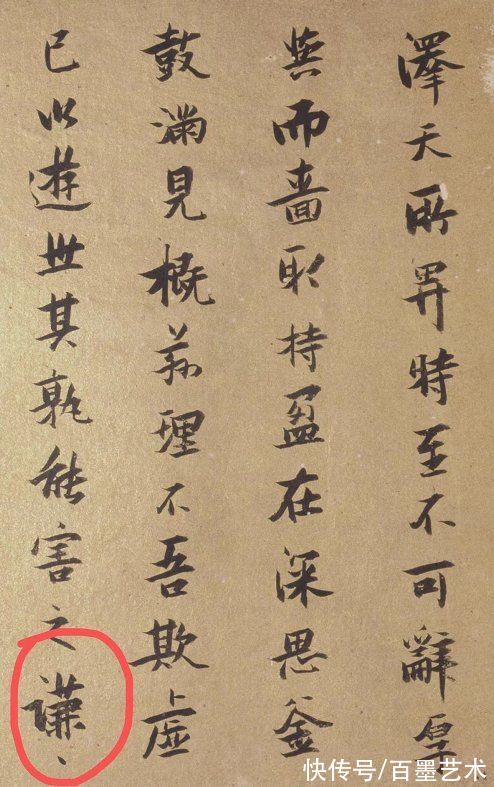 澤天所畀時至不可辭厚
與而嗇取持盈在深思釜
鼓滿見概茲理不吾欺虛
已以遊世其孰能害之謙、
快传号/百墨艺术